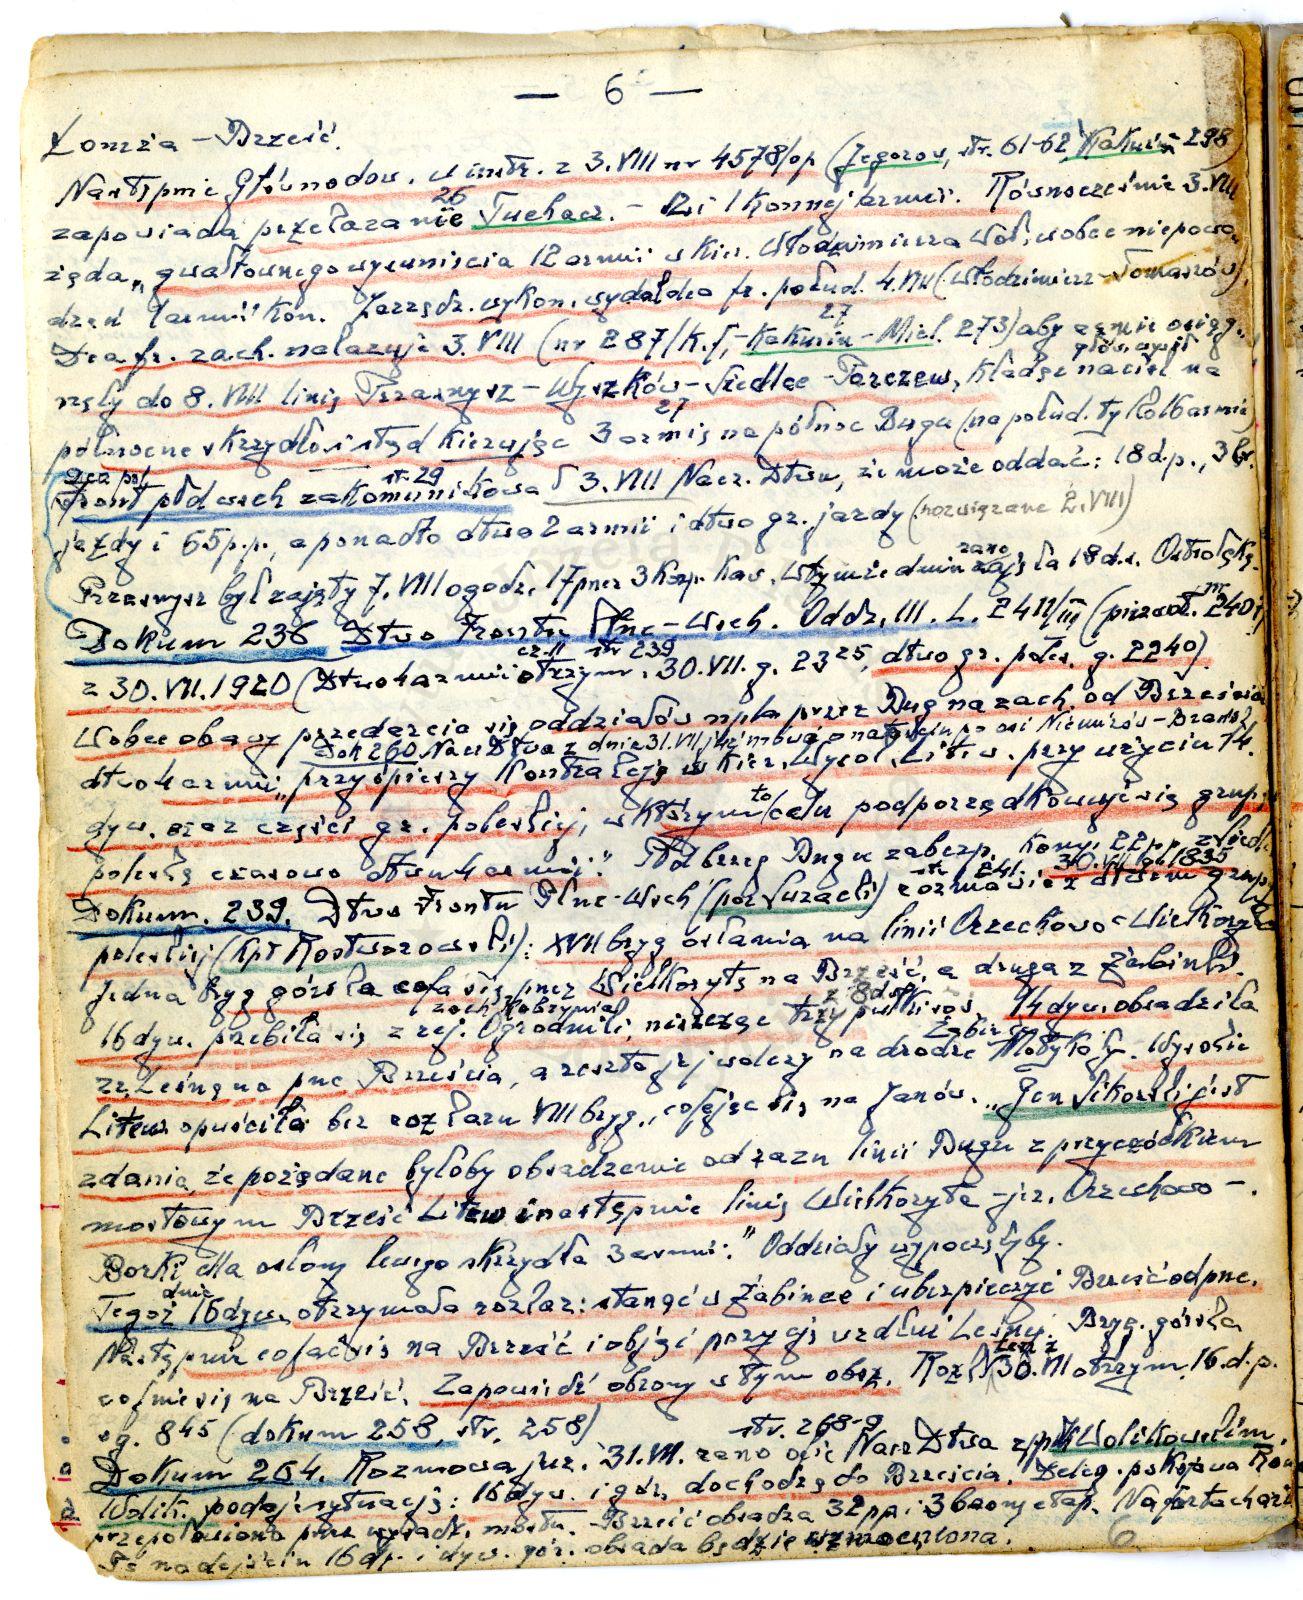 — 6 —
Łomża – Brześć.
Następnie Głównodow. w instr. z 3.VIII nr 4578/op (Jegorow, str. 61-62, Kakurin 298)
zapowiada przekazanie 26 Tuchacz. – 12 i 1 Konnej armii. Równocześnie 3.VIII
żąda „gwałtownego wysunięcia 12 armii w kier. Włodzimierza Woł., wobec niepowo-
dzeń 1 armii kon. Zarządz. wykon. wydał dca fr. połud. 4.VIII (Włodzimierz–Tomaszów).
27
Dca fr. zach. nakazuje 3.VIII (nr 287/k.f, – Kakurin – Miel. 273) aby armie osiąg-
nęły do 8.VIII linię Przasnysz – Wyszków – Siedlce – Parczew, kładąc nacisk na
północne skrzydło i stąd kierując 27 3 armię na północ Bugu (na połud. ty
Dca płn.
Front płd wsch zakomunikował str. 29 3.VIII Nacz. Dtwu, że może oddać: 18 d.p., 3 br.
jazdy i 65 p.p., a ponadto dtwo 2 armii i dtwo gr. jazdy (rozwiązane 2.VIII)
Przasnysz był zajęty 7.VIII o godz. 17 przez 3 korp. kaw., w tymże dniu rano zajęła 18 d.s. Ostrołękę.
Dokum 236 Dtwo Frontu Płnc–Wsch. Oddz. III. L. 2411/III (nr 240)
z 30.VII.1920 (Dtwo 4 armii otrzym. 30.VII. g. 23 25, dtwo gr. poles. g. 22 40).
cz. II str 239
Wobec obawy przedarcia się oddziałów npla przez Bug na zach. od Brześcia
Dok 260 Nacz Dtwa z dnia 31.VII, osi Niemirów – Brańsk
dtwo 4 armii „przyśpieszy kontrakcję w kier. Wysok. Litew. przy użyciu 14.
dyw. oraz części gr. poleskiej, w którym to celu podporządkowuje się grupę
poleską czasowo dtwu 4 armii." Płd brzeg Bugu zabezp. komp. 22 pp. z Siedlc
Dokum. 239. Dtwo Frontu Płnc-Wsch (por Suzacki) str. 241. 30.VII g. 18 35 rozmawia z dtwem grupy
poleskiej (kpt Rostworowski): XVII bryg osłania na linii Orzechowo – Wielkoryta
Jedna bryg górska cofa się przez Wielkorytę na Brześć, a druga z Żabinki.
16 dyw. przebiła się z rej. Ogrodniki, niszcząc trzy pułki sow. z 8 dyw. 14 dyw. obsadziła
zach. Kobrynia
rz. Leśną na płnc Brześcia, a reszta jej walczy na drodze Żabinka Motykały. Wysokie
Litew. opuściła bez rozkazu VIII bryg., cofając się na Janów. „Gen Sikorski jest
zdania, że pożądane byłoby obsadzenie od razu linii Bugu z przyczółkiem
mostowym Brześć Litew i następnie linię Wielkoryta – jez. Orzechowo –
Borki dla osłony lewego skrzydła 3 armii." Oddziały wypoczęłyby.
Tegoż dnia 16 dyw. otrzymała rozkaz: stanąć w Żabince i ubezpieczyć Brześć od płnc.
Następnie cofać się na Brześć i objąć pozycję wzdłuż Leśnej. Bryg. górska
cofnie się na Brześć. Zapowiedź obrony w tym obsz. Rozk. ten z 30.VII otrzym. 16. d.p.
o g. 8 45 (dokum 258, str. 258)
str. 268-9
Dokum 264. Rozmowa juz. 31.VII. rano ofic Nacz Dtwa z ppłk Wolikowskim.
Wolik. podaje sytuację: 16 dyw. i gór. dochodzą do Brześcia. Deleg. pokojowa
przepołowiona przez wysadz. mostu. Brześć obsadza 32 pp. i 3 baony etap. Na fortach art.
Po nadejściu 16 dp. i dyw. gór. obsada będzie wzmocniona.
6